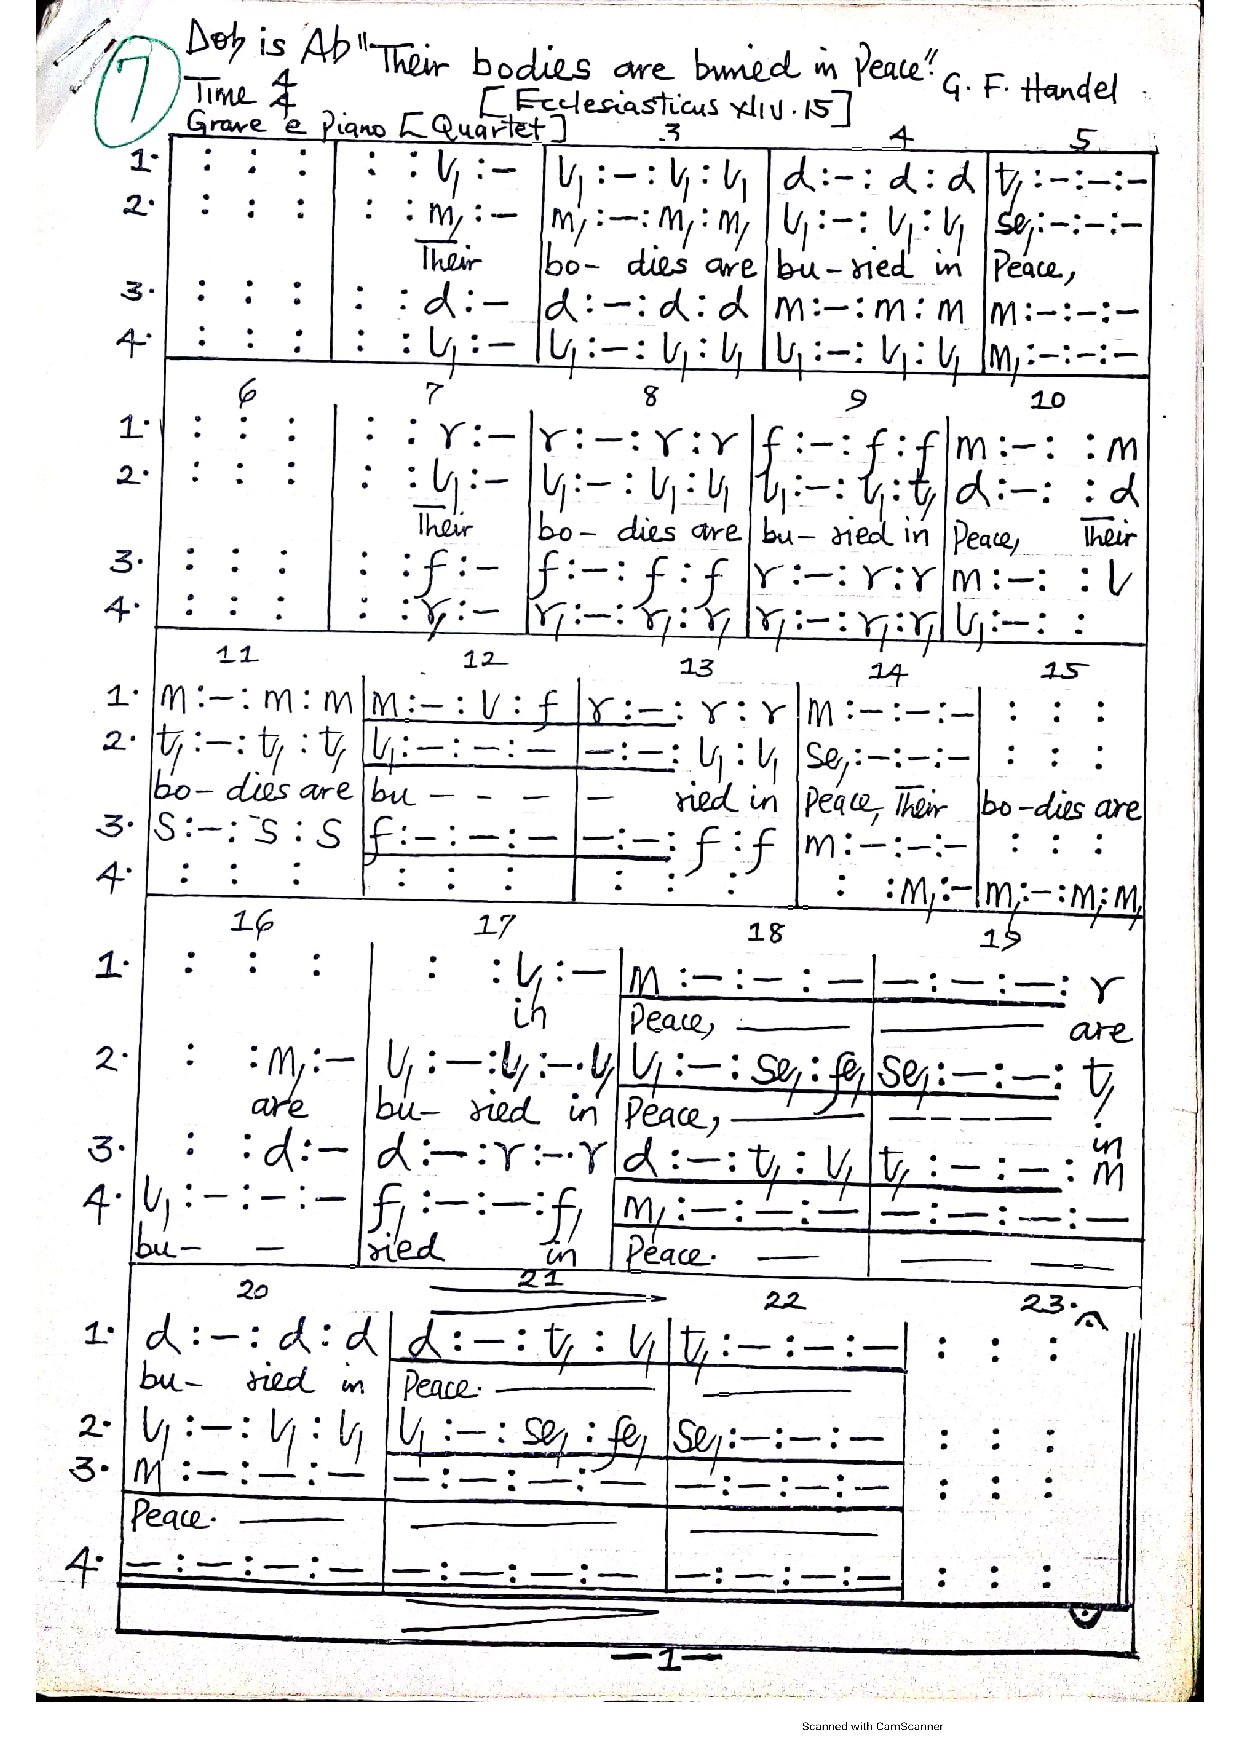 7
Doh is Ab "Their bodies are buried in Peace". G. F. Handel
Time 4/4 [Ecclesiasticus xliv. 15]
Grave e Piano [Quartet]
3 4 5
1. : : : | : : l, :– | l, :– : l, : l, | d :– : d : d | t, :– :– :–
2. : : : | : : m, :– | m, :– : m, : m, | l, :– : l, : l, | se, :– :– :–
Their bo- dies are bu-ried in Peace,
3. : : : | : : d :– | d :– : d : d | m :– : m : m | m :– :– :–
4. : : : | : : l, :– | l, :– : l, : l, | l, :– : l, : l, | m, :– :– :–
6 7 8 9 10
1. : : : | : : r :– | r :– : r : r | f :– : f : f | m :– : : m
2. : : : | : : l, :– | l, :– : l, : l, | t, :– : t, : t, | d :– : : d
Their bo- dies are bu-ried in Peace, Their
3. : : : | : : f :– | f :– : f : f | r :– : r : r | m :– : : l
4. : : : | : : r, :– | r, :– : r, : r, | r, :– : r, : r, | l, :– : :
11 12 13 14 15
1. m :– : m : m | m :– : l : f | r :– : r : r | m :– :– :– | : : :
2. t, :– : t, : t, | l, :– :– :– | – :– : l, : l, | se, :– :– :– | : : :
bo-dies are bu - - - - ried in Peace, Their bo-dies are
3. s :– : s : s | f :– :– :– | – :– : f : f | m :– :– :– | : : :
4. : : : | : : : | : : : | : : m, :– | m, :– : m, : m,
16 17 18 19
1. : : : | : : l, :– | m :– :– :– | – :– :– : r
in Peace, are
2. : : m, :– | l, :– : l, :–. l, | l, :– : se, : fe, | se, :– :– : t,
are bu- ried in Peace, in
3. : : d :– | d :– : r :–. r | d :– : t, : l, | t, :– :– : m
4. l, :– :– :– | f, :– :– : f, | m, :– :– :– | – :– :– :–
bu- - ried in Peace.
20 21 22 23.
1. d :– : d : d | d :– : t, : l, | t, :– :– :– | : : :
bu- ried in Peace.
2. l, :– : l, : l, | l, :– : se, : fe, | se, :– :– :– | : : :
3. m :– :– :– | – :– :– :– | – :– :– :– | : : :
Peace.
4. – :– :– :– | – :– :– :– | – :– :– :– | : : :
—1—
Scanned with CamScanner